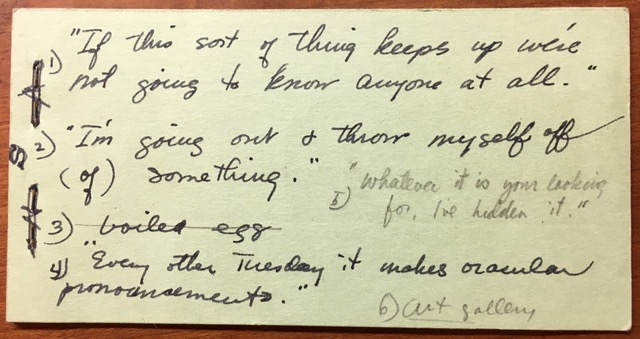 1) "If this sort of thing keeps up we're
not going to know anyone at all."
2) "I'm going out & throw myself off
(of) something."
5) "Whatever it is your looking
for, I've hidden it."
3) boiled egg
4) "Every other Tuesday it makes oracular
pronouncements."
6) art gallery
A
S
A